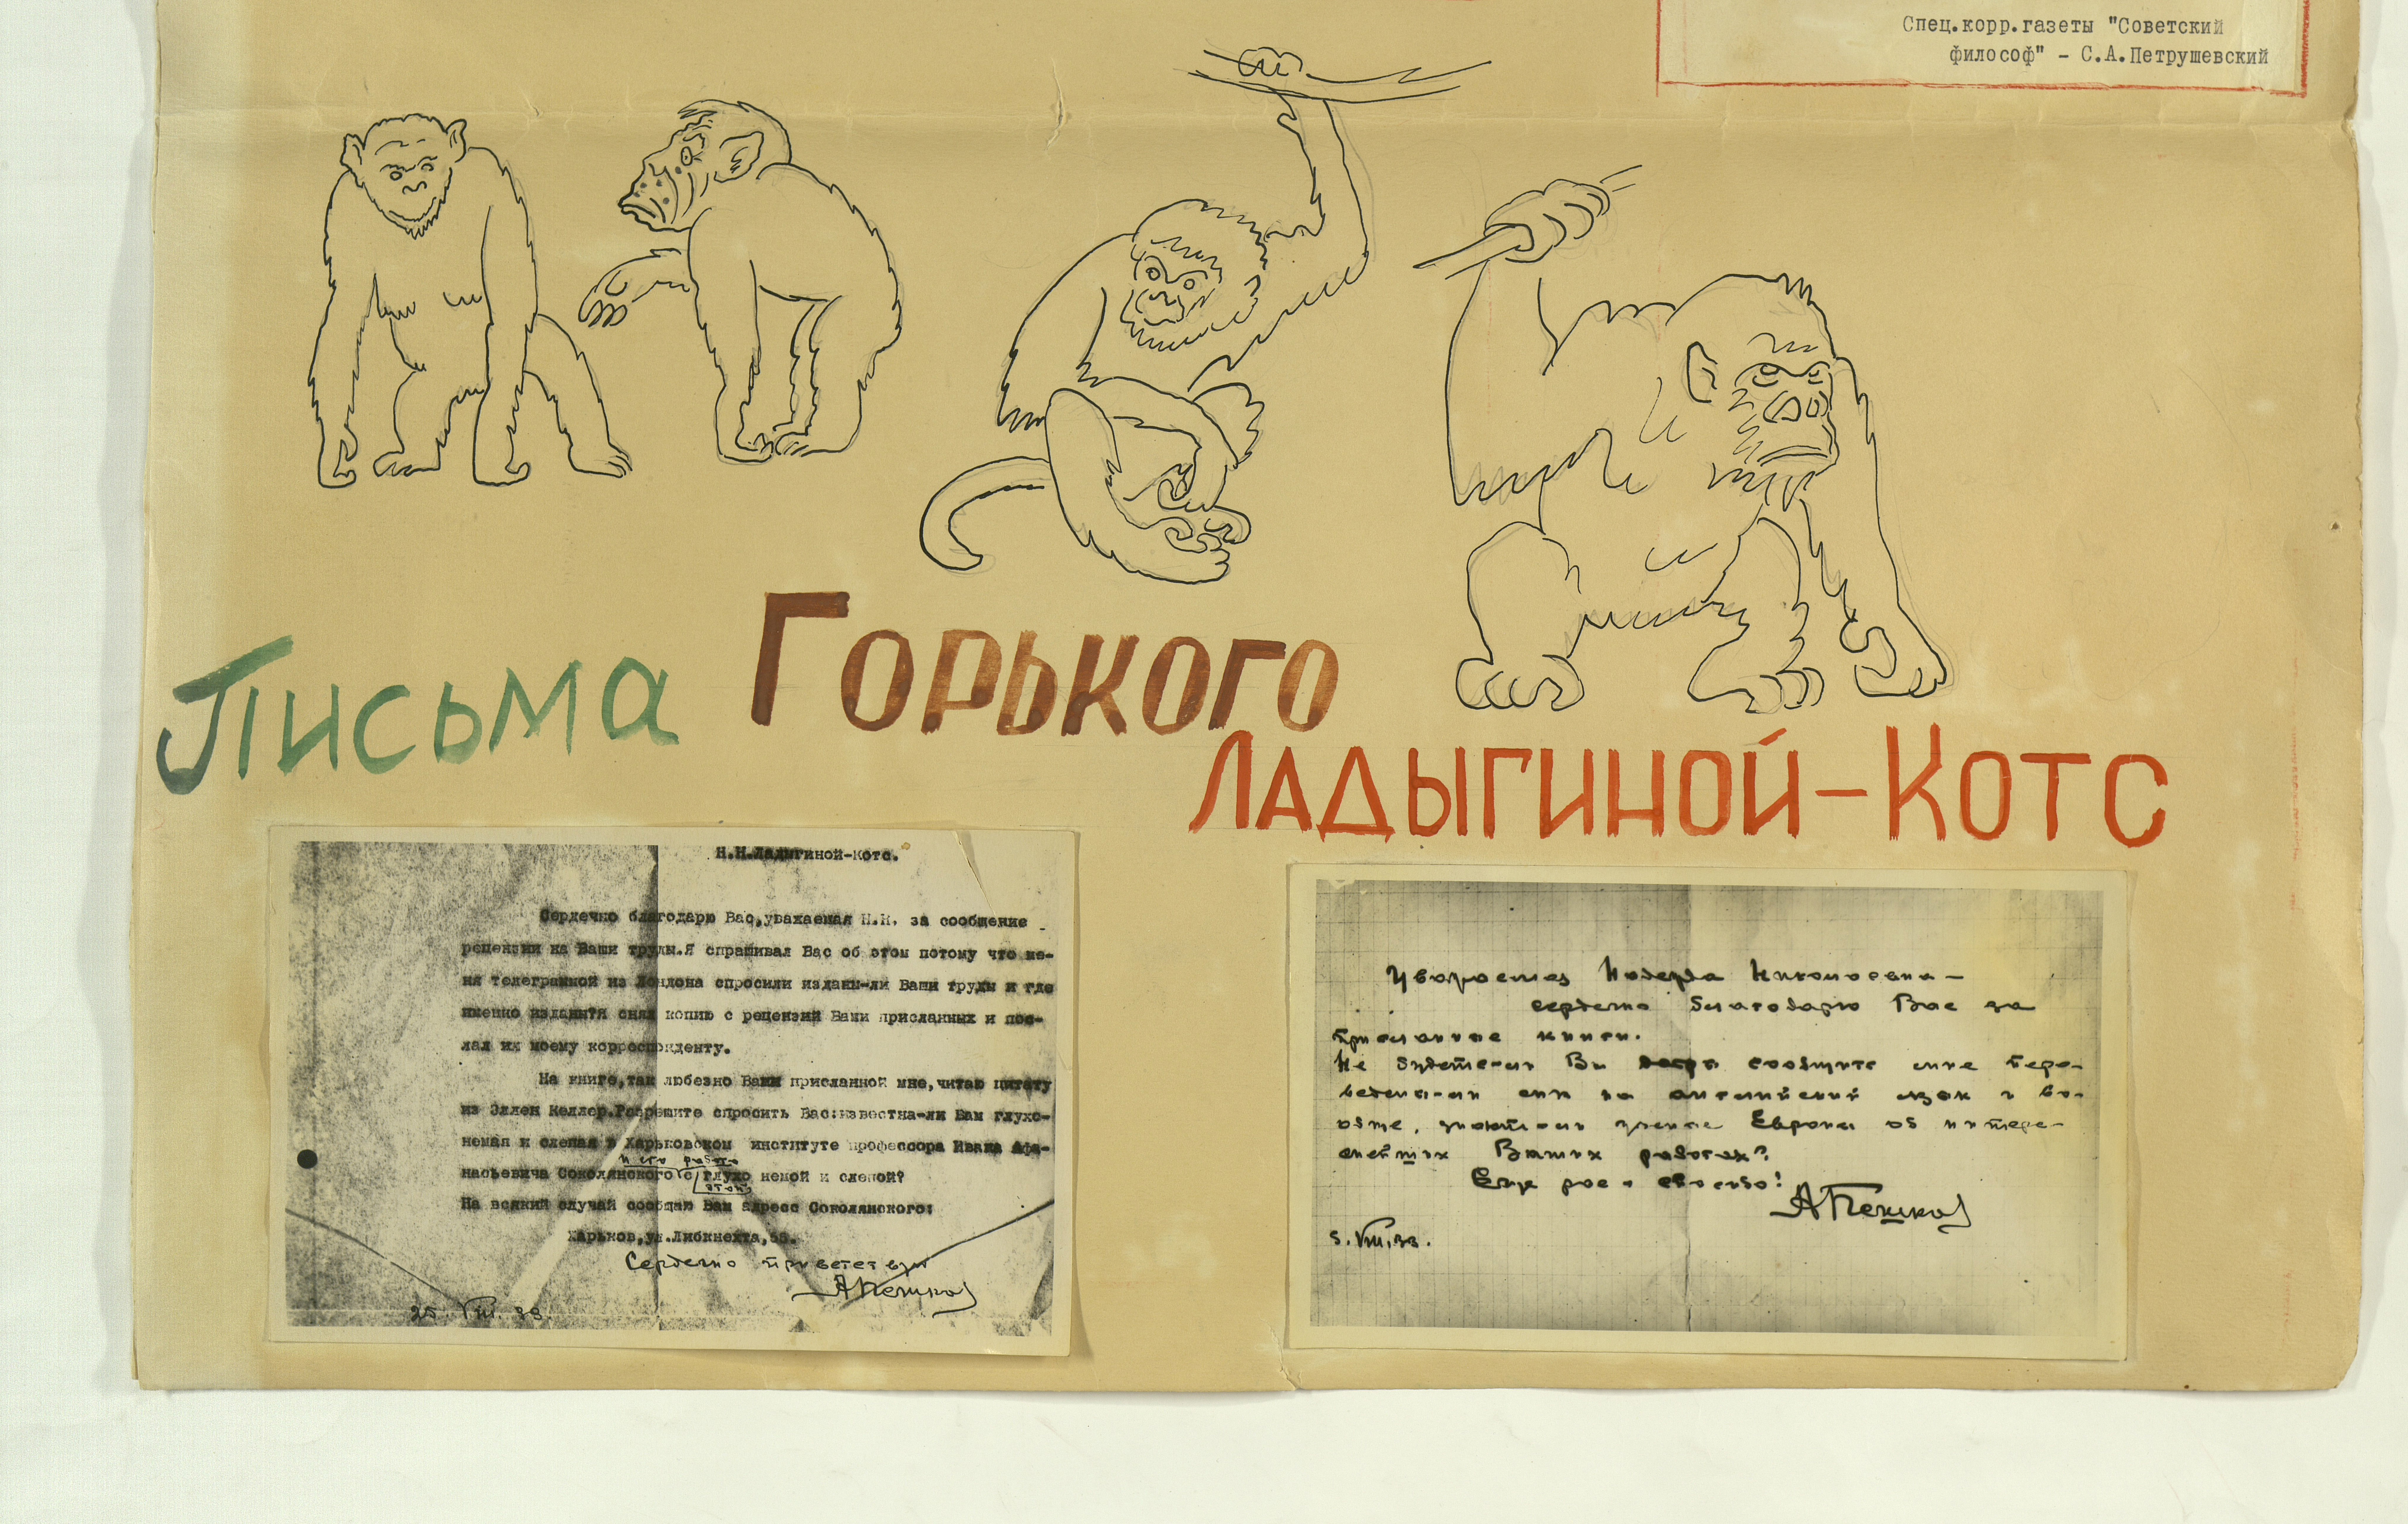 Спец.корр.газеты "Советский
философ" - С.А.Петрушевский
Письма Горького
Ладыгиной-Котс
Н.Н.Ладыгиной-Котс.
Сердечно благодарю Вас,уважаемая Н.Н. за сообщение
рецензии на Ваши труды.Я спрашивал Вас об этом потому что ме-
ня телеграммой из Лондона спросили изданы-ли Ваши труды и где
именно изданы?Я снял копию с рецензий Вами присланных и пос-
лал их моему корреспонденту.
На книге,так любезно Вами присланной мне,читаю цитату
из Эллен Келлер.Разрешите спросить Вас:известна-ли Вам глухо-
немая и слепая в Харьковском институте профессора Ивана Афа-
насьевича Соколянского и его работа с этой глухо немой и слепой?
На всякий случай сообщаю Вам адресс Соколянского:
Харьков,ул.Либкнехта,
Сердечно приветствую
А Пешков
25. VIII. 33.
Уважаемая Надежда Николаевна –
сердечно благодарю Вас за
присланные книги.
Не будете-ли Вы сообщить мне пере-
ведены-ли они на английский язык и во-
обще, знают-ли ученые Европы об интере-
снейших Ваших работах?
Еще раз – спасибо!
А Пешков
5. VIII. 33.